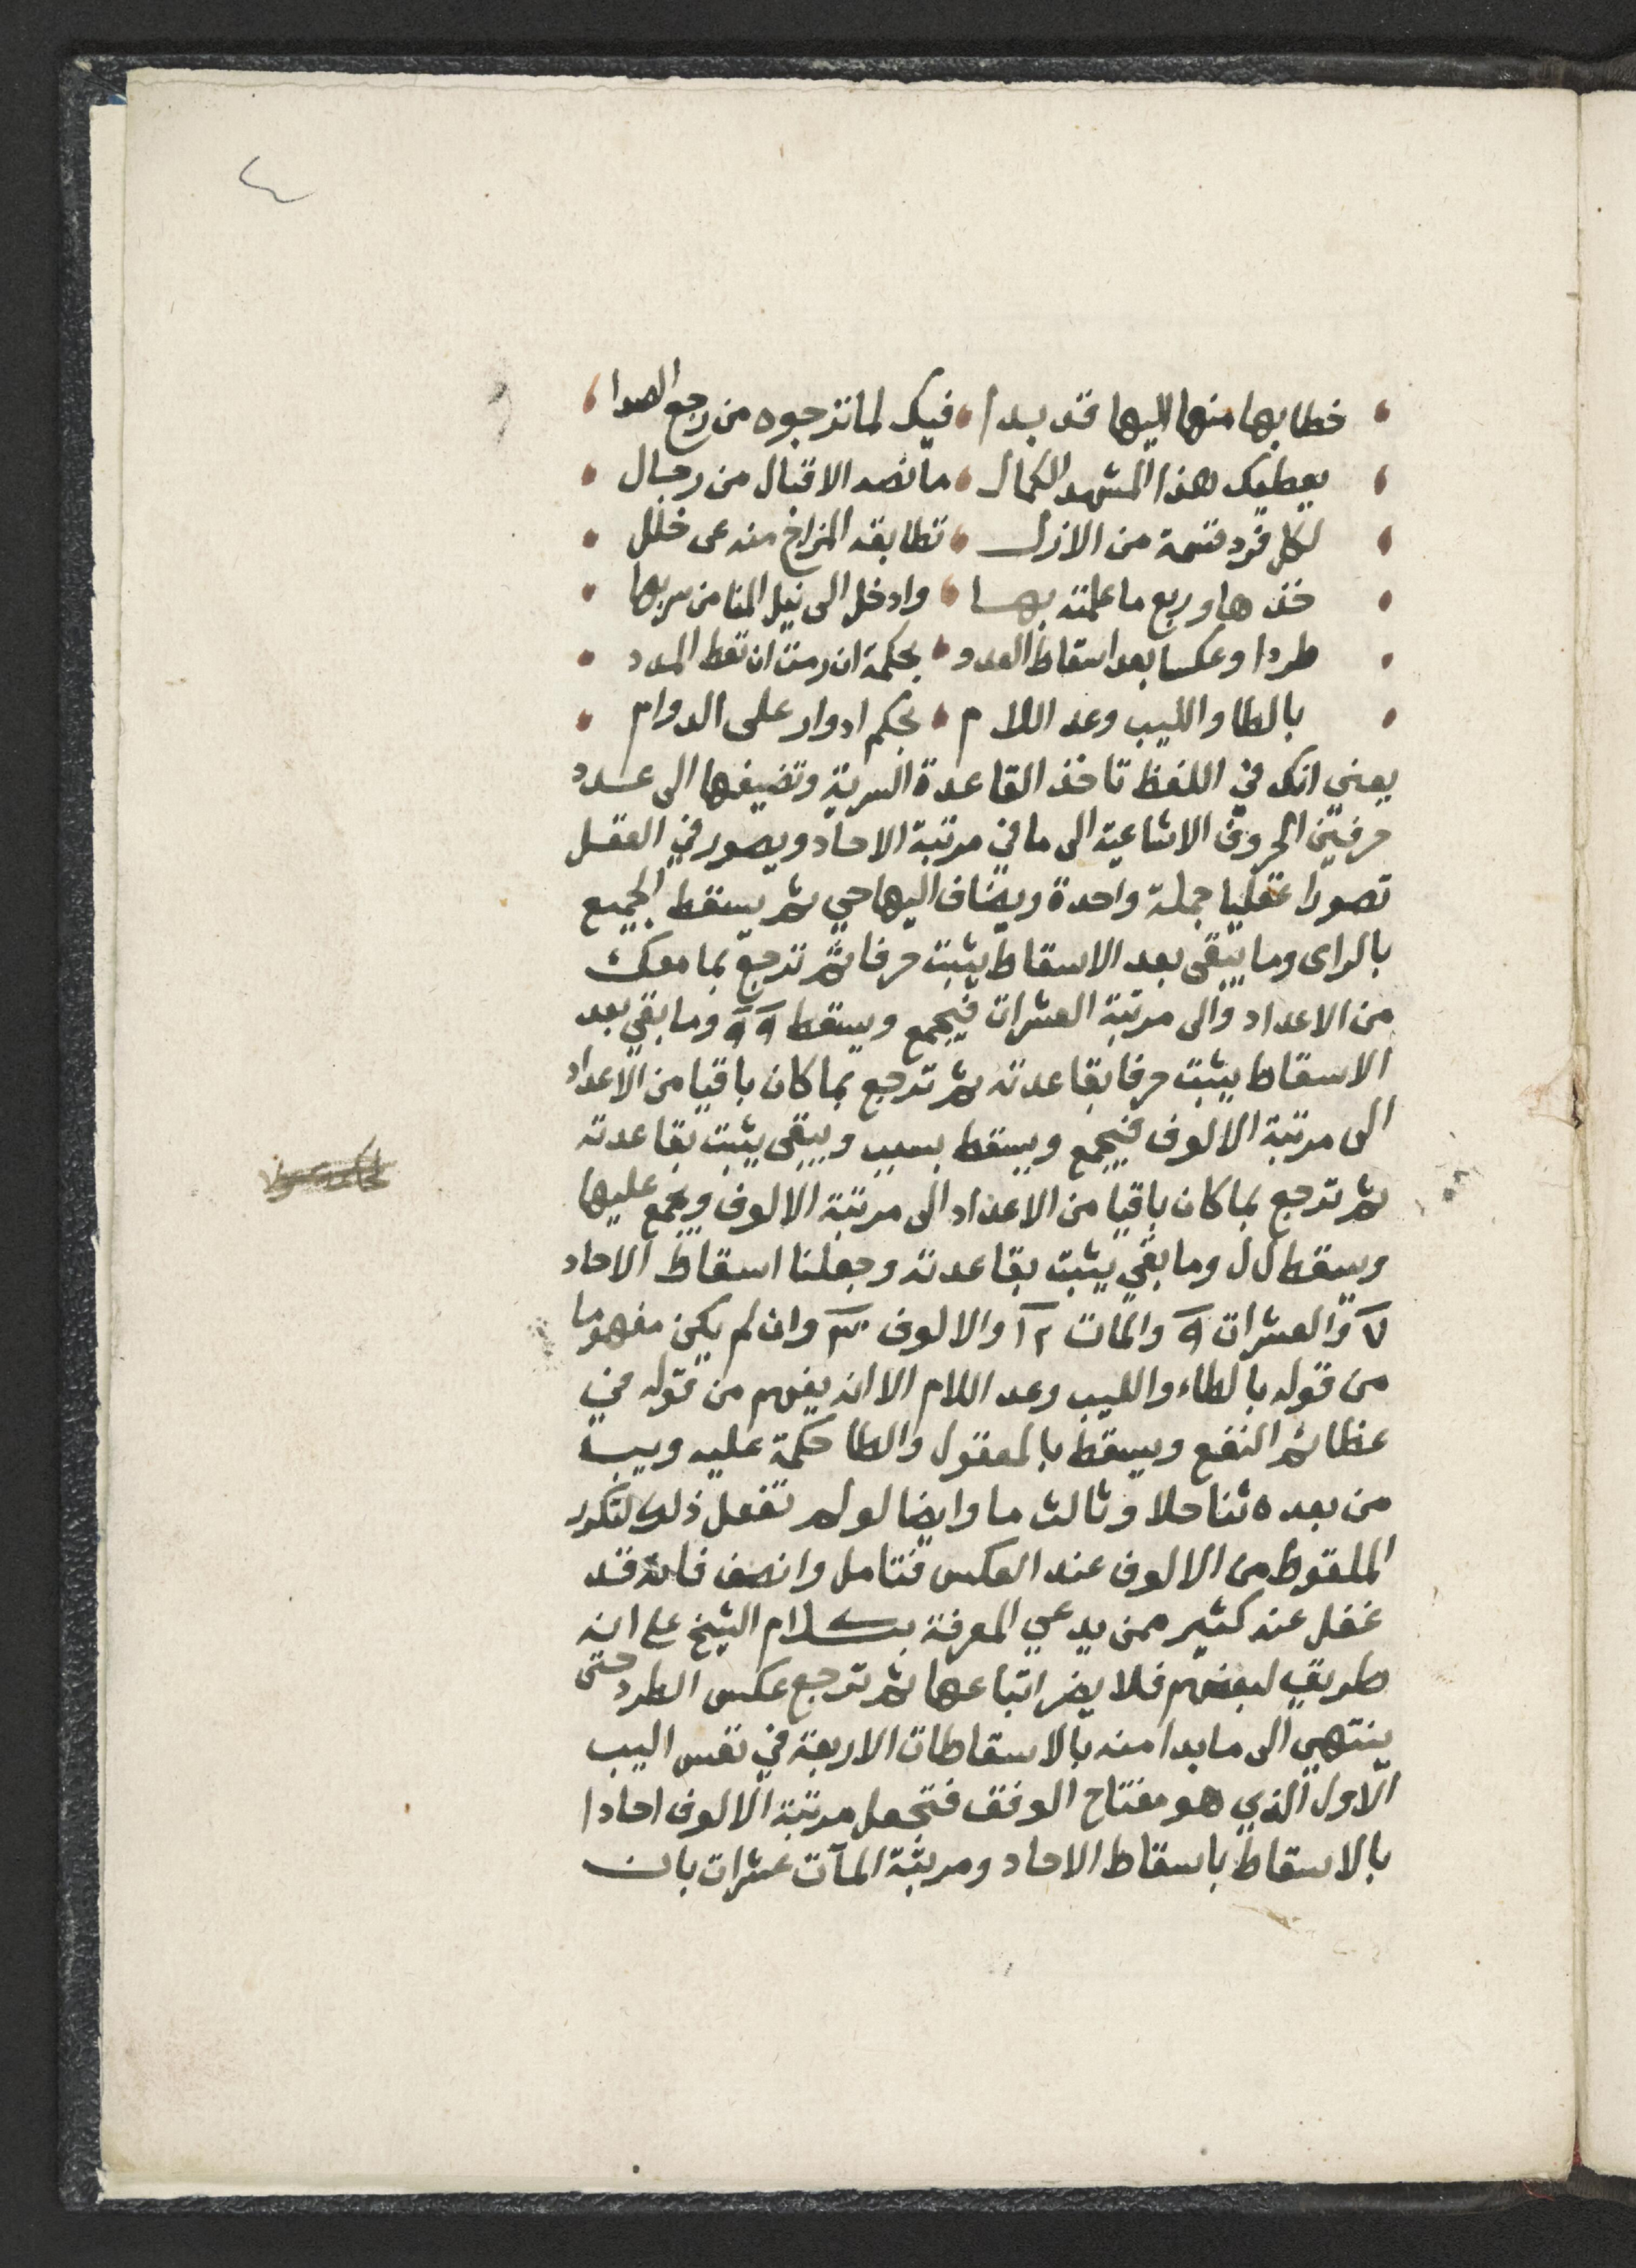 ٤
خطابها منها اليها قد بدا فيك لما ترجوه من رجع الصدا
يعطيك هذا المشهد الكمال ما نصه الاقبال من رجال
لكل فرد قسمة من الازل تطابقه المزاج منه عن خلل
خذها وربع ما علمته بها وادخل الى نيل المنا من سربها
طردا وعكسا بعد اسقاط العدد بحكمة ان رمت ان تعط المدد
بالطا واليب وعد اللام بحكم ادوار على الدوام
يعني انك في اللفظ تاخذ القاعدة السرية وتضيفها الى عدد
حرفين الحروف الاشاعية الى ما في مرتبة الاحاد ويصور في العقل
تصورا عقليا جملة واحدة ويضاف اليها حي ثم يسقط الجميع
بالراى وما يبقى بعد الاسقاط يثبت حرفا ثم ترجع بما معك
من الاعداد والى مرتبة العشرات فيجمع ويسقط ٩٩ وما بقي بعد
الاسقاط يثبت حرفا بقاعدته ثم ترجع بما كان باقيا من الاعداد
الى مرتبة الالوف فيجمع ويسقط بسبب ويبقى يثبت بقاعدته
ثم ترجع بما كان باقيا من الاعداد الى مرتبة الالوف ويجمع عليها
ويسقط ل ل وما بقي يثبت بقاعدته وجعلنا اسقاط الاحاد
٧ والعشرات ٩ والمات ١٢ والالوف ٣٠ وان لم يكن مفهوما
من قوله بالطاء واليب وعد اللام الا انه يفهم من قوله في
عظائم النفع ويسقط بالمعقول والطا حكمة عليه ويب
من بعده ثنا حلا وثالث ما وايضا لو لم تفعل ذلك لتكرر
الملقوط من الالوف عند العكس فتامل وانصف فانه قد
غفل عنه كثير ممن يدعي المعرفة بكلام الشيخ على انه
طريق لبعضهم فلا يضر اتباعها ثم ترجع عكس الطرد حتى
ينتهي الى ما بدا منه بالاسقاطات الاربعة في نفس اليب
الاول الذي هو مفتاح الوفق فتجعل مرتبة الالوف احادا
بالاسقاط باسقاط الاحاد ومرتبة المآت عشرات بان